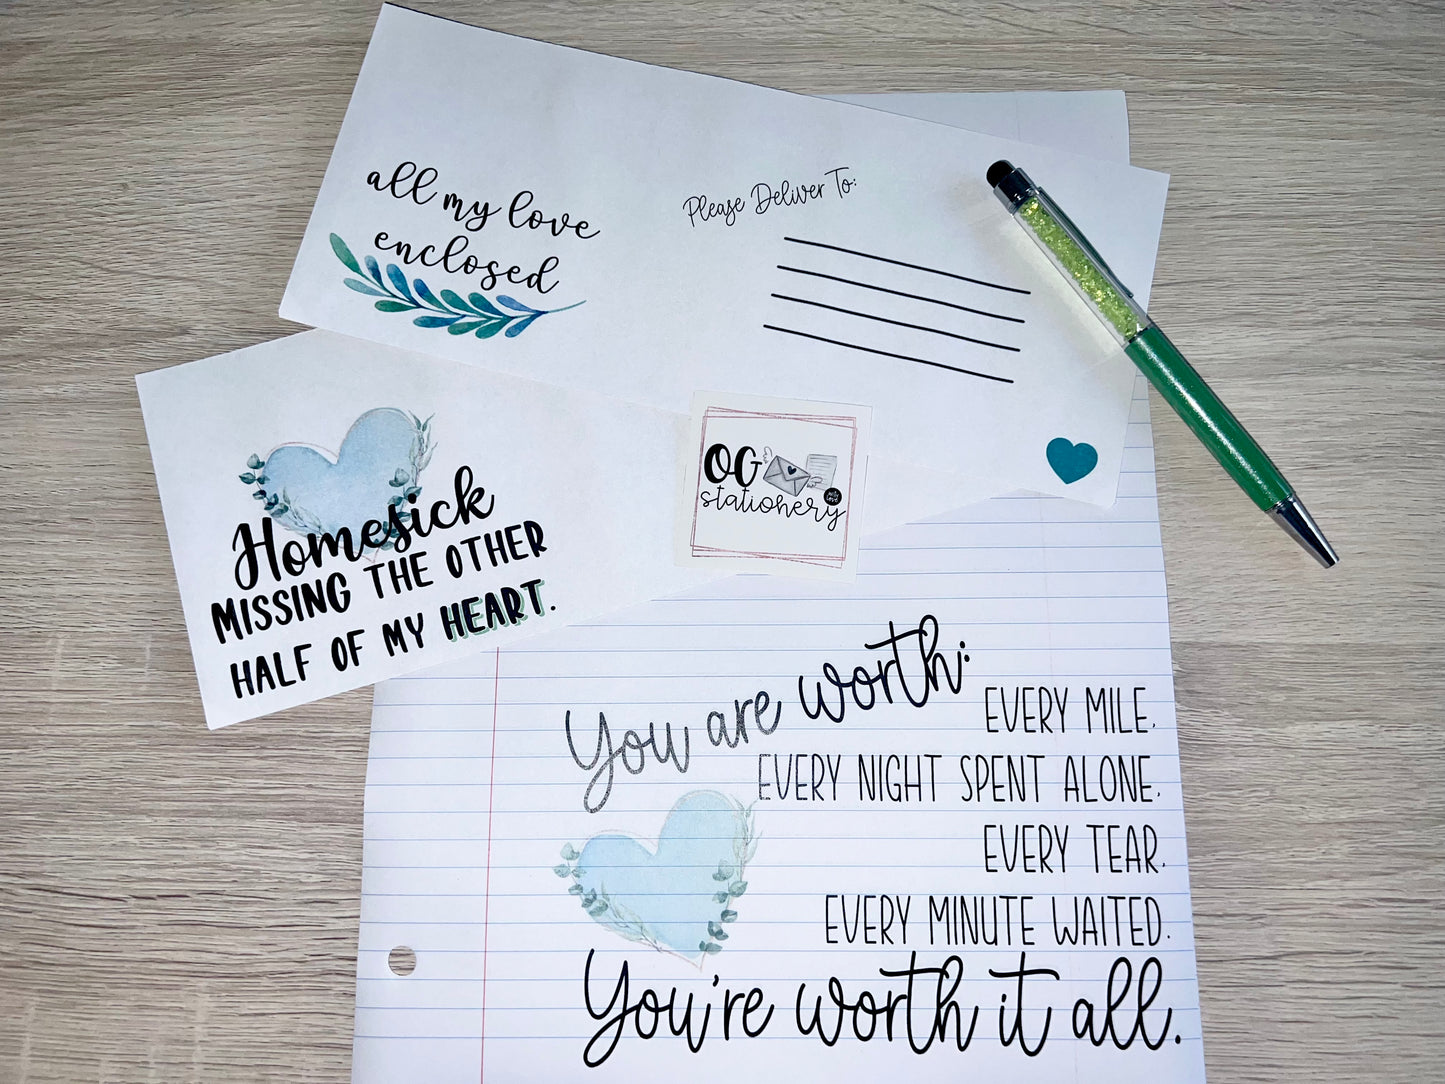 all my love
enclosed
Please Deliver To:
Homesick
MISSING THE OTHER
HALF OF MY HEART.
OG
stationery
with
love
You are worth:
EVERY MILE.
EVERY NIGHT SPENT ALONE.
EVERY TEAR.
EVERY MINUTE WAITED.
You're worth it all.